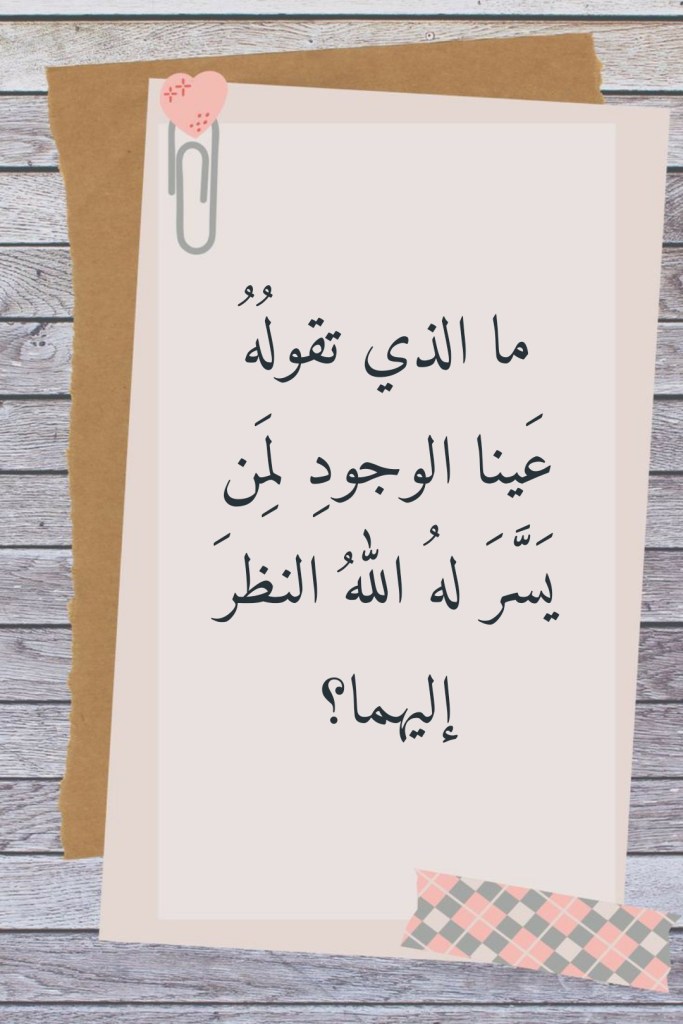 ما الذي تقولُهُ
عَينا الوجودِ لِمَن
يَسَّرَ لهُ اللهُ النظرَ
إليهما؟